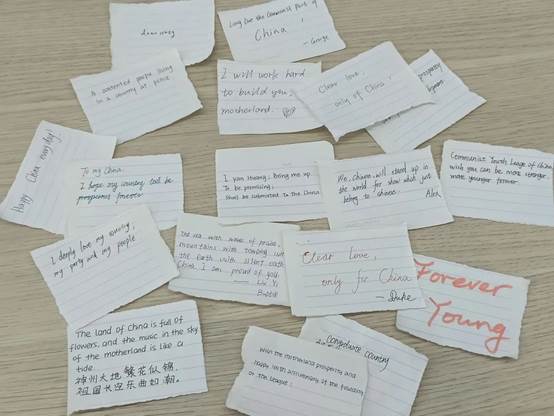 Long live the Communist Party of
China!
- George
A contented people living
in a country at peace
I will work hard
to build you,
motherland.
Clear love,
only of China!
prosperity
Happy China everyday!
To my China
I hope my country will be
prosperous forever
Bring me up
To be promising,
Shall be submitted to the China
We, Chinese, will stand up in
the world for show which just
belong to
Alex
Communist Youth League of China
wish you can be more stronge
more younger forever
I deeply love my country,
my party and my people
The sea with wave of praise,
mountains with
the Earth with silent oath
China I am proud of you.
Clear love,
only for China
- Duke
Forever
Young
The land of China is full of
flowers, and the music in the sky
of the motherland is like a
tide.
神州大地繁花似锦,
祖国长空乐曲如潮。
Congratulate Country
Wish the motherland prosperity and
anniversary of the founding
of the League!